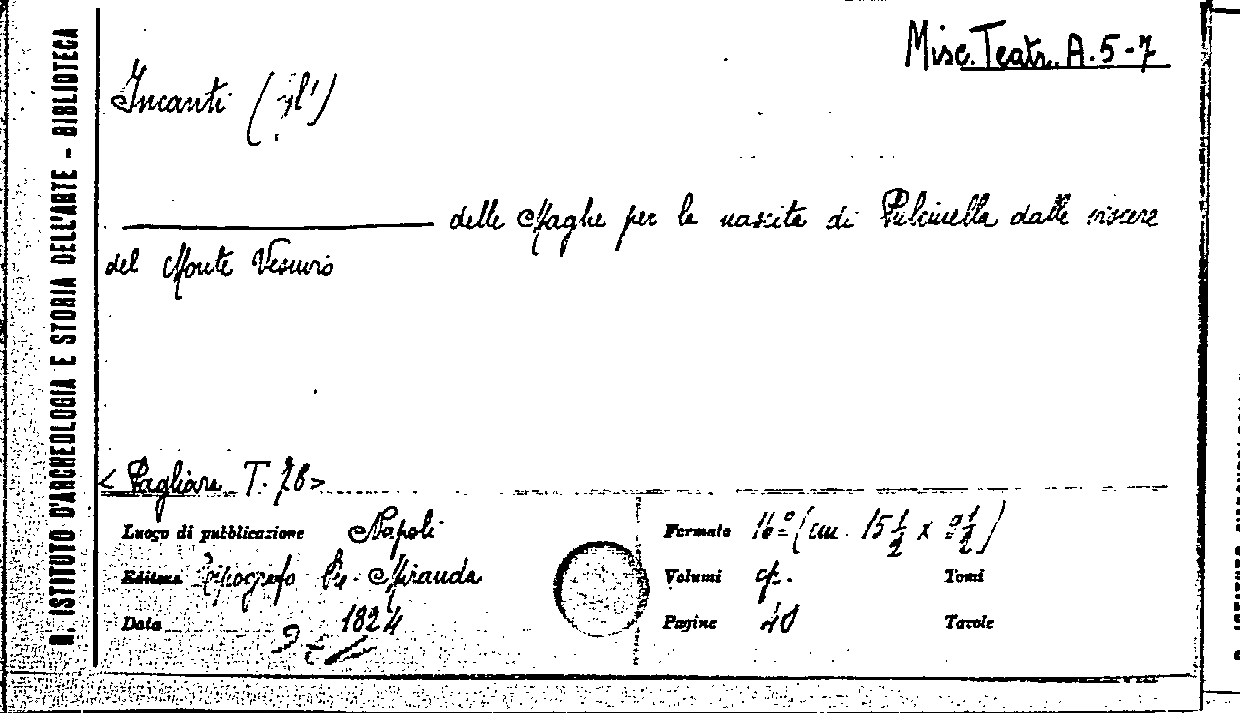 Misc. Teatr. A. 5-7
Incanti (gl')
delle Maghe per la nascita di Pulcinella dalle viscere
del Monte Vesuvio
< Pagliara T. 28>
Luogo di pubblicazione Napoli
Editore Tipografo Miranda
Data 1824
Formato 16º (cm. 15 1/2 x 9 1/2)
Volumi Tomi
Pagine 40 Tavole
R. ISTITUTO D'ARCHEOLOGIA E STORIA DELL'ARTE - BIBLIOTECA